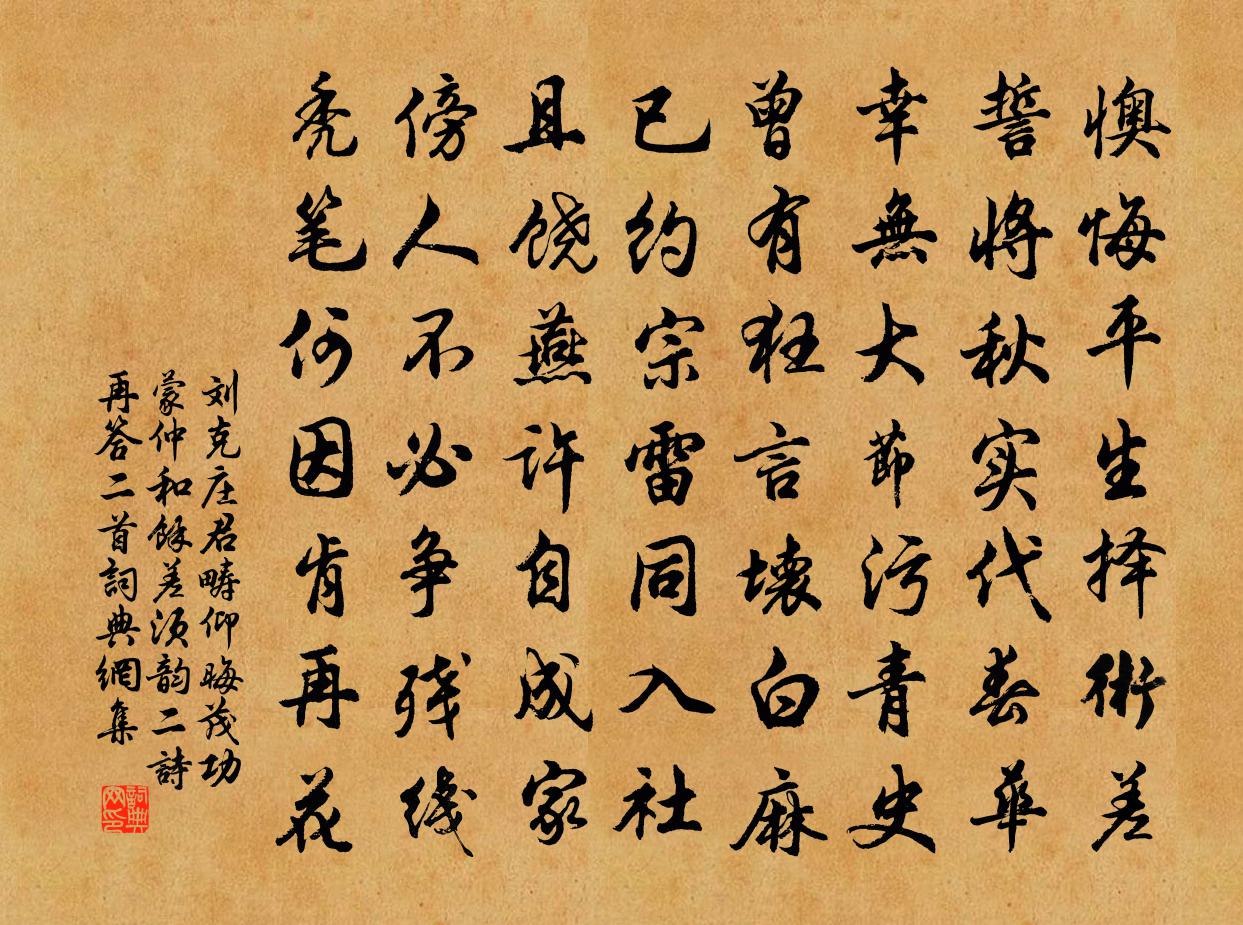 懊悔平生择術差
誓將秋实代春華
幸無大節污青史
曾有狂言壊白麻
已约宗雷同入社
且饶燕许自成家
傍人不必争残线
秃笔何因肯再花
刘克庄君疇仰晦茂功
蒙仲和餘差须韵二詩
再答二首詞典網集
詞典网印